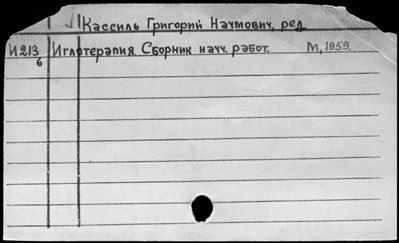 Кассиль Григорий Наумович, ред.
И213 Иглотерапия. Сборник науч. работ. М., 1959.
6